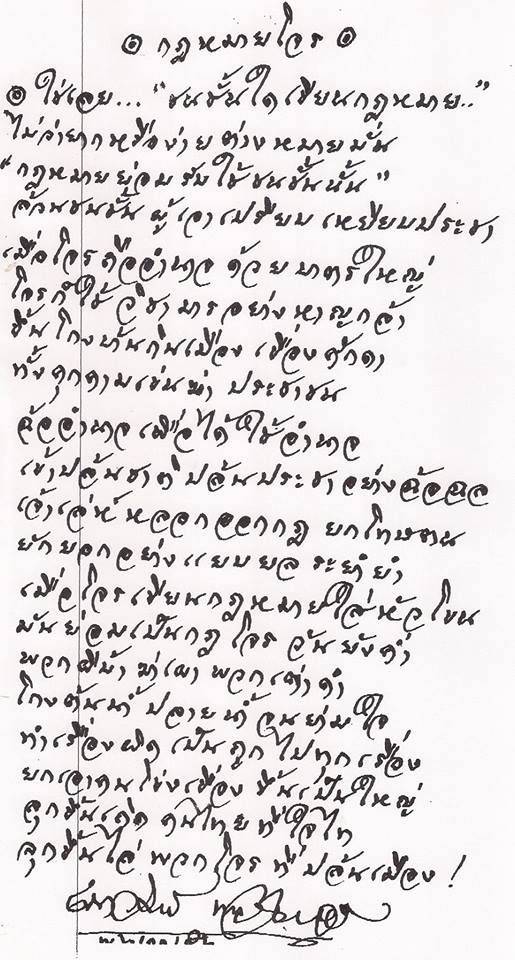 ๏ กฎหมายโจร ๏
๏ ใช่เลย... "ชนชั้นใดเขียนกฎหมาย.."
ไม่ว่ายากหรือง่าย ต่างหมายมั่น
"กฎหมายย่อมรับใช้ชนชั้นนั้น"
ล้วนชนชั้น ผู้เอาเปรียบ เหยียบประชา
เมื่อโจรถืออำนาจ ด้วยบาตรใหญ่
โจรก็ใช้ วิชามารอย่างหาญกล้า
ขึ้นโกงบ้านกินเมือง เขื่องศักดา
ทั้งคุกคามเข่นฆ่า ประชาชน
ฉ้ออำนาจ เพื่อได้ใช้อำนาจ
เข้าปล้นชาติปล้นประชาอย่างฉ้อฉล
เจ้าเล่ห์หลอกออกกฎ ยกโทษตน
ยักยอกอย่างแยบยล ระยำยำ
เมื่อโจรเขียนกฎหมายใส่หัวโขน
มันย่อมเป็นกฎโจร อันยังค่ำ
พวกผีบ้า ห่าเผา พวกเต่าดำ
โกงต้นน้ำ ปลายน้ำ จนย่ามใจ
ทำเรื่องผิด เป็นถูก ไปทุกเรื่อง
ยกเอาคนโข่งเขื่อง ขึ้นเป็นใหญ่
ลุกขึ้นเถิด คนไทย ที่ใจไท
ลุกขึ้นไล่ พวกโจร ที่ปล้นเมือง !